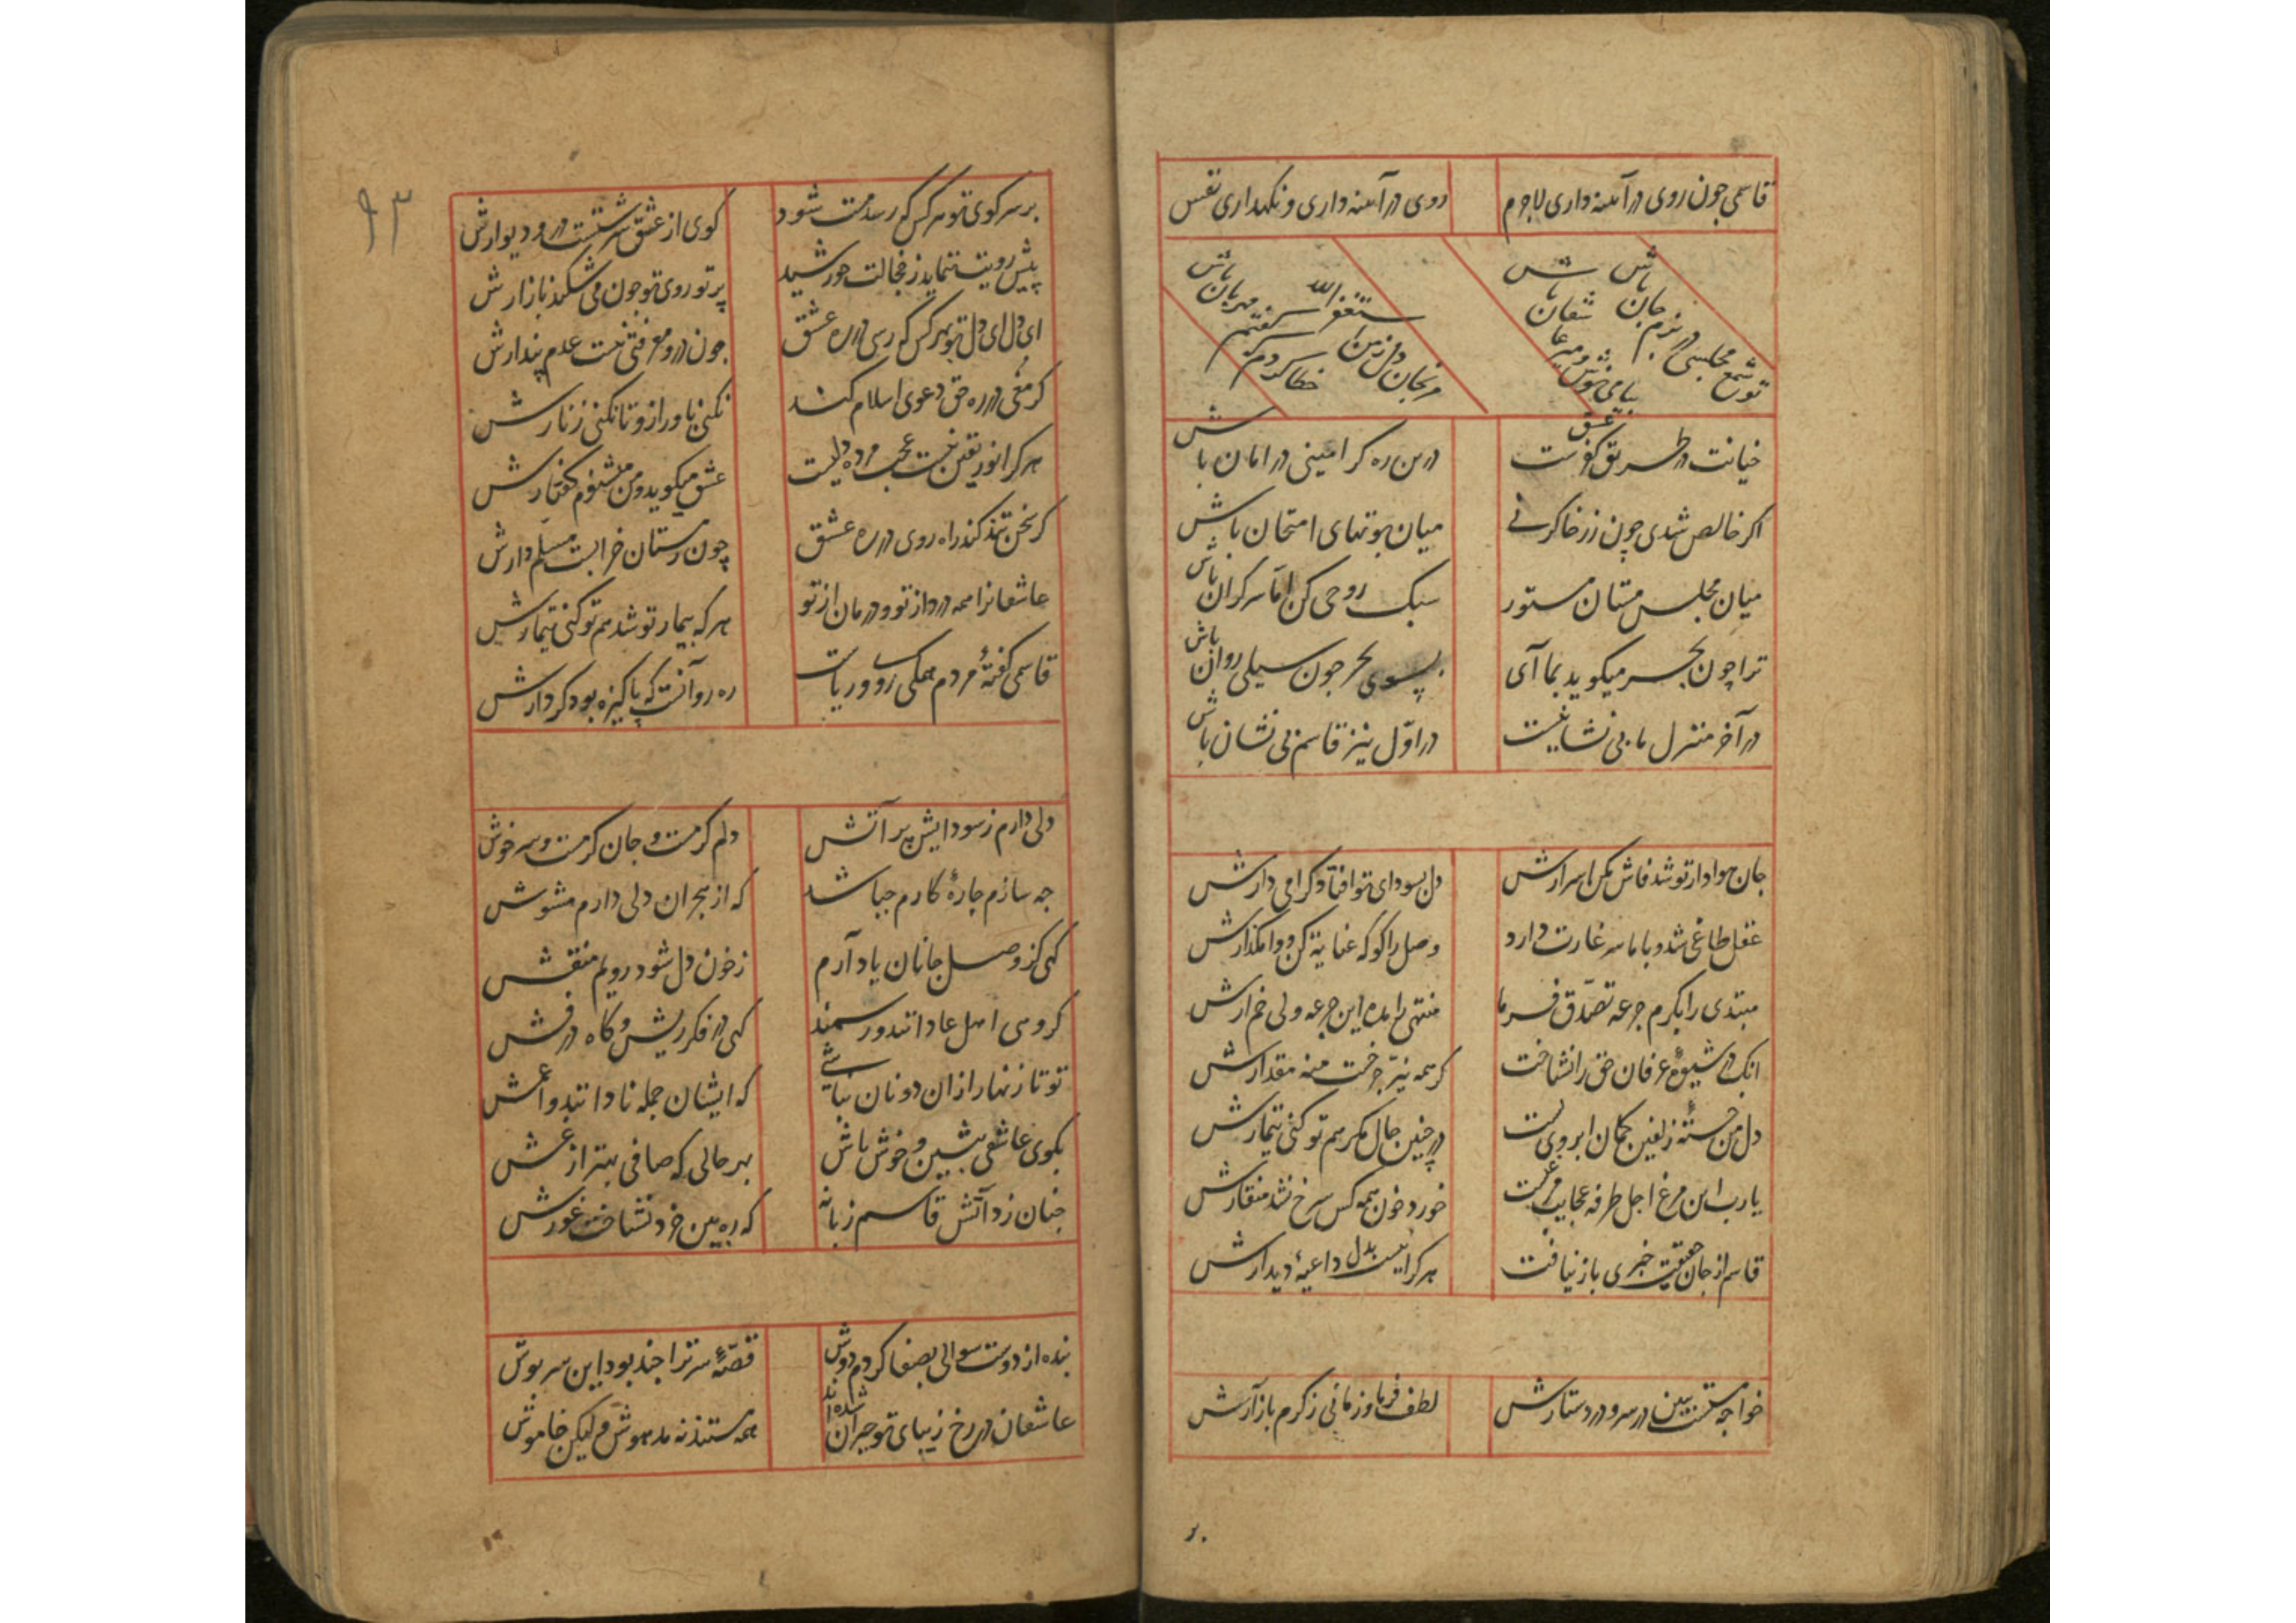 قاسمی جون روی در آینه داری لاجرم روی در آینه داری و نکهداری نفس
تو شمع مجلسی در بزم جان باش
بیا می نوش و میر عاشقان باش
مرنجان دل ز من استغفر الله
خطا کردم که گفتم مهربان باش
خیانت در طریق عشق کفرست درین ره کر امینی در امان باش
اکر خالص شدی چون زر خاکرنی میان بوتهای امتحان باش
میان مجلس مستان مستور سبک روحی کن اما سرکران باش
ترا چون بحر میکوید بما آی بسوی بحر جون سیلی روان باش
در آخر منزل ما بی نشانیست در اول نیز قاسم بی نشان باش
جان هوادار تو شد فاش مکن اسرارش دل بسودای تو افتاد کرامی دارش
عقل طاغی شد و با ما سر غارت دارد وصل را کو که عنایة کن و وامکذارش
مبتدی را بکرم جرعه تصدق فرما منتهی را مده این جرعه ولی خم آرش
انک در شیوهٔ عرفان حق را نشناخت کر همه نیر جرخست منه مقدارش
دل من خستهٔ زلفین کمان ابروی تست در جنین حال مکر هم تو کنی تیمارش
یا رب این مرغ اجل طرفه عجایب مرغیست خورد خون همه کس سرخ نشد منقارش
قاسم از جان حقیقت خبری باز نیافت هر کرا نیست بدل داعیهٔ دیدارش
خواجه مستست ببین در سر و در دستارش لطف فرما و زمانی ز کرم باز آرش
۹۳
بر سر کوی تو هر کس که رسد مست شود کوی از عشق سرشتست در و دیوارش
پیش رویت ننماید ز خجالت خورشید پرتو روی تو جون می شکند بازارش
ای دل ای دل تو بهر کس که رسی در ره عشق جون درو معرفتی نیست عدم پندارش
کر مغی در ره حق دعوی اسلام کند نکنی باور ازو تا نکنی زنارش
هر کرا نور یقین نیست عجب مرده دلیست عشق میکوید و من مشنوم کفتارش
کر سخن تند کند راه روی در ره عشق چون ز مستان خرابست مسلم دارش
عاشقانرا همه درد از تو و درمان از تو هر که بیمار تو شد هم تو کنی تیمارش
قاسمی کفتهٔ مردم همکی روو ریاست ره رو آنست که پاکیزه بود کردارش
دلی دارم ز سودایش پر آتش دلم کرمست و جان کرمست و سر خوش
جه سازم جارهٔ کارم جه باشد که از هجران دلی دارم مشوش
کهی کز وصل جانان یاد آرم ز خون دل شود رویم منقش
کروهی اهل عاداتند و رسمند کهی در فکر ریش و کاه در فش
تو تا زنهار ازان دونان نباشی که ایشان جمله نادانند و اعمش
بکوی عاشقی بنشین و خوش باش بهر حالی که صافی بهتر از غش
جنان زد آتش قاسم زبانه که ره بین خرد نشناخت غورش
بنده از دوست سوالی بصفا کردم دوش قصهٔ سر ترا جند بود این سرپوش
عاشقان در رخ زیبای تو حیران شده اند همه مستند نه مدهوش ولیکن خاموش